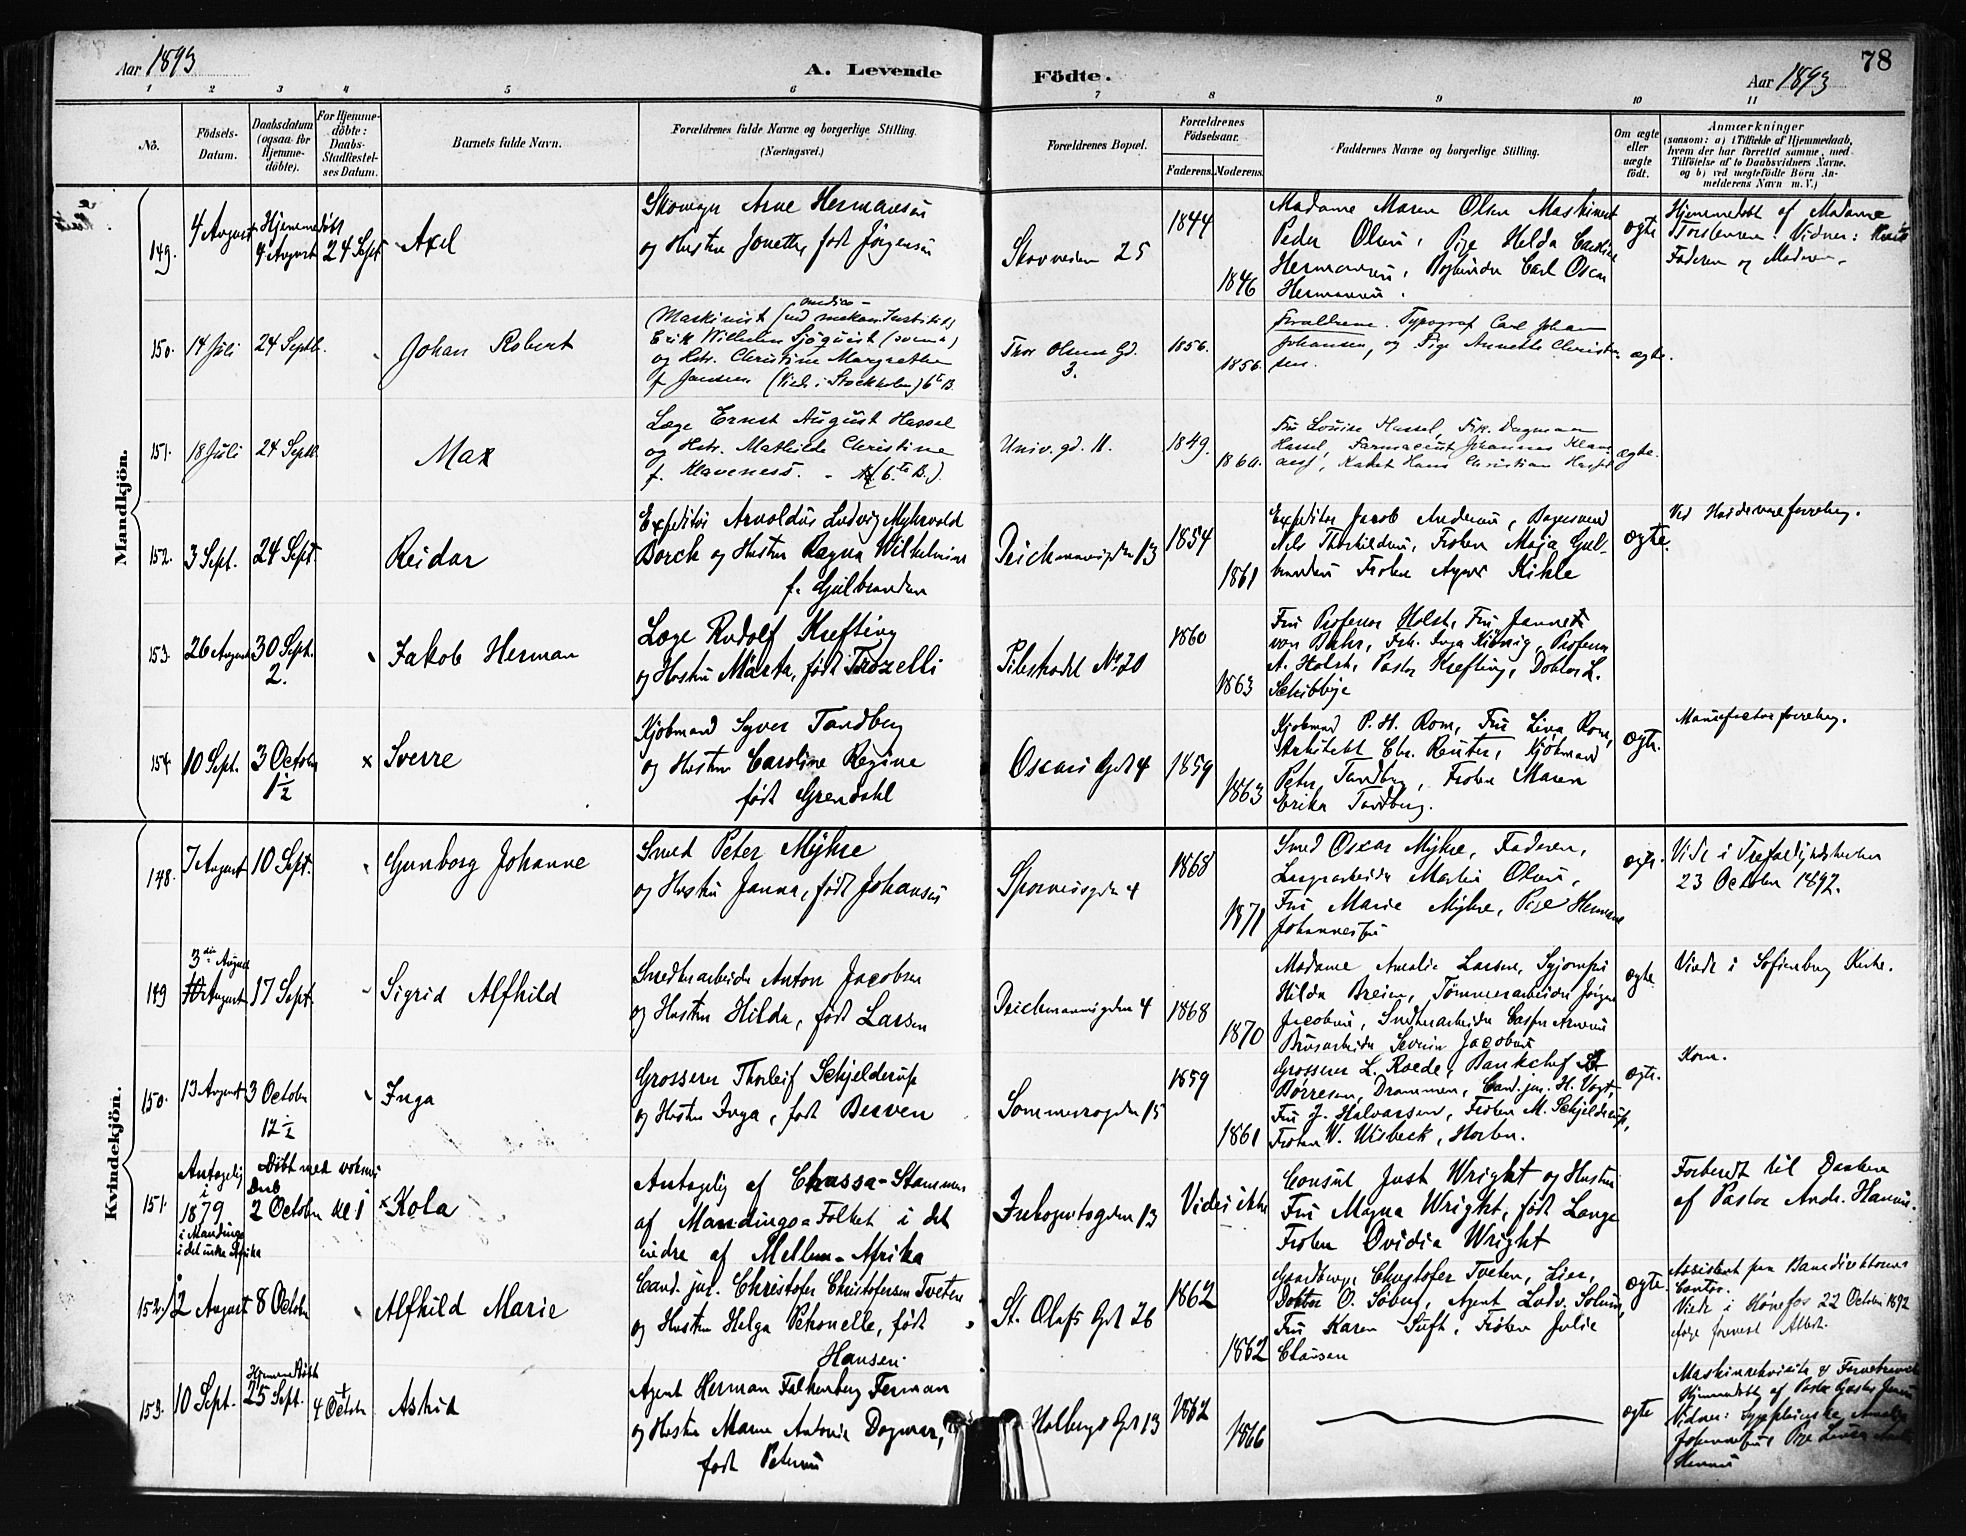 Aar 1893
A. Levende
Födte.
Aar 1893
78
1 2 3 4 5 6 7 8 9 10 11
No.
Födsels-
Datum.
Daabsdatum
(ogsaa for
Hjemme-
döbte).
For Hjemme-
döbte:
Daabs-
Stadfæstel-
ses Datum.
Barnets fulde Navn.
Forældrenes fulde Navne og borgerlige Stilling.
(Næringsvei.)
Forældrenes Bopæl.
Forældrenes
Födselsaar.
Faderens.
Moderens.
Faddernes Navne og borgerlige Stilling.
Om ægte
eller
uægte
födt.
Anmærkninger
(saasom: a) i Tilfælde af Hjemmedaab,
hvem der har forrettet samme, med
Tilföielse af to Daabsvidners Navne,
og b) ved uegtefödte Börn An-
melderens Navn m. V.)
Mandkjön.
149.
4 August
Hjemmedöbt
4 August
24 Sept
Axel
Arne Hermansen
og Hustru Jonette, født Jørgensen
Skovveien 25
1844
1846
Madame Maren Olsen Maskinist
Peder Olsen, Pige Helda Caroline
Hermansen, Bogbinder Carl Oscar
Hermansen.
ægte
Hjemmedöbt af Madame
Torstensen. Vidner:
Faderen og Moderen.
150.
14 Juli
24 Septb.
Johan Robert
Maskinist (ved medico-mekan. Institut)
Erik Wilhelm Sjöquist (svensk)
og Hstr. Christine Margrethe
f. Jansen (Viede i Stockholm) 6te B.
Thor Olsens Gd.
3.
1856.
1856.
Forældrene. Typograf Carl Johan
Johansen, og Pige Annette Christen-
sen.
ægte.
151.
18 Juli
24 Septb.
Max
Læge Ernst August Hassel
og Hstr. Mathilde Christine
f. Klaveness. - (6te B.).
Univ. gd. 11.
1849.
1860.
Fru Louise Hassel, Frk. Dagmar
Hassel, Farmaceut Johannes Klave-
ness, Kadet Hans Christian Hassel
ægte.
152.
3 Sept.
24 Sept.
Reidar
Expeditør Arnoldus Ludvig Myhrvold
Borch og Hustru Ragna Wilhelmine
f. Gulbrandsen
Deichmannsgden 13
1854
1861
Expeditør Jacob Andersen,
Nils Thorkildsen, Frøken Maja Gul-
brandsen Frøken Agnes Kihle
ægte.
Ved Hardevareforretning.
153.
26 August
30 Sept.
2.
Jakob Herman
Læge Rudolf Krefting
og Hustru Märta, født Trozelli
Pilestrædet No 20
1860
1863
Fru Professor Holst, Fru Jannet
von Bahr, Frk. Inga König, Professor
A. Holst, Pastor Krefting, Doktor L.
Schibbye
154.
10 Sept.
3 October
1½
x Sverre
Kjøbmand Syver Tandberg
og Hustru Caroline Regine
født Grendahl
Oscars Gd 4
1859
1863
Kjøbmand P. H. Rom, Fru Lina Rom,
Arkitekt Chr. Reuter, Kjøbmand
Peter Tandberg, Frøken Maren
Erika Tandberg.
ægte.
Manufacturforretng.
Kvindekjön.
148.
7 August
10 Sept.
Gunborg Johanne
Smed Peter Myhre
og Hustru Janna, født Johansen
Sporveisgden 4
1868
1871
Smed Oscar Myhre, Faderen,
Martin Olsen,
Fru Marie Myhre, Pige Hermine
Johannessen
ægte.
Viede i Trefoldighedskirken
23 October 1892.
149
3die August
10 August
17 Sept.
Sigrid Alfhild
Snedkerarbeider Anton Jacobsen
og Hustru Hilda, født Larsen
Deichmannsgden 4
1868
1870
Madame Amalie Larsen, Syjomfru
Hilda Breien, Tømmerarbeider Jørgen
Jacobsen, Snedkerarbeider Casper Arnesen
Brusarbeider Severin Jacobsen
ægte
Viede i Sofienberg Kirke.
150.
13 August
3 October
12½
Inga
Grosserer Thorleif Schjelderup
og Hustru Inga, født Berven
Sommerogden 15
1859
1861
Grosserer L. Roede, Bankchef
Børresen, Drammen, Cand. jur. H. Vogt,
Fru J. Halvorsen, Frøken M. Schjelderup,
Frøken W. Wisbeck, Horten.
ægte.
Korn.
151.
Antagelig
i
1879
i Mandingo
i det indre Afrika
Döbt med voksnes
Daab
2 October kl 1
x Kola
Antagelig af Chassa-Stammen
af Mandingoa-Folket i det
indre af Mellem-Afrika
Incognitogden 13
Vides ikke
Consul Just Wright og Hustru
Fru Magna Wright, født Lange
Frøken Ovidia Wright
Forberedt til Daaben
af Pastor Andr. Hansen.
152.
2 August
8 October
Alfhild Marie
Cand. jur. Christofer Christofersen Tveten
og Hustru Helga Petronelle, født
Hansen.
St. Olafs Gd 26
1862
1862
Gaardbruger Christofer Tveten, Lier,
Doktor O. Søberg, Agent Ludv. Solum,
Fru Karen Tuft, Frøken Julie
Clausen
ægte
Assistent paa Banedirektørens
Contor.
Viede i Hønefos 22 October 1892
153.
10 Sept.
Hjemmedöbt
25 Sept.
4 Octobr
Astrid
Agent Herman Falkenberg Ferman
og Hustru Maren Antonie Dagmar,
født Petersen
Holbergs Gd 13
1862
1866
ægte
Hjemmedöbt af Pastor Gustav Jensen
Vidner: Sygepleierske Amalie
Johannesen, Pige Lovise